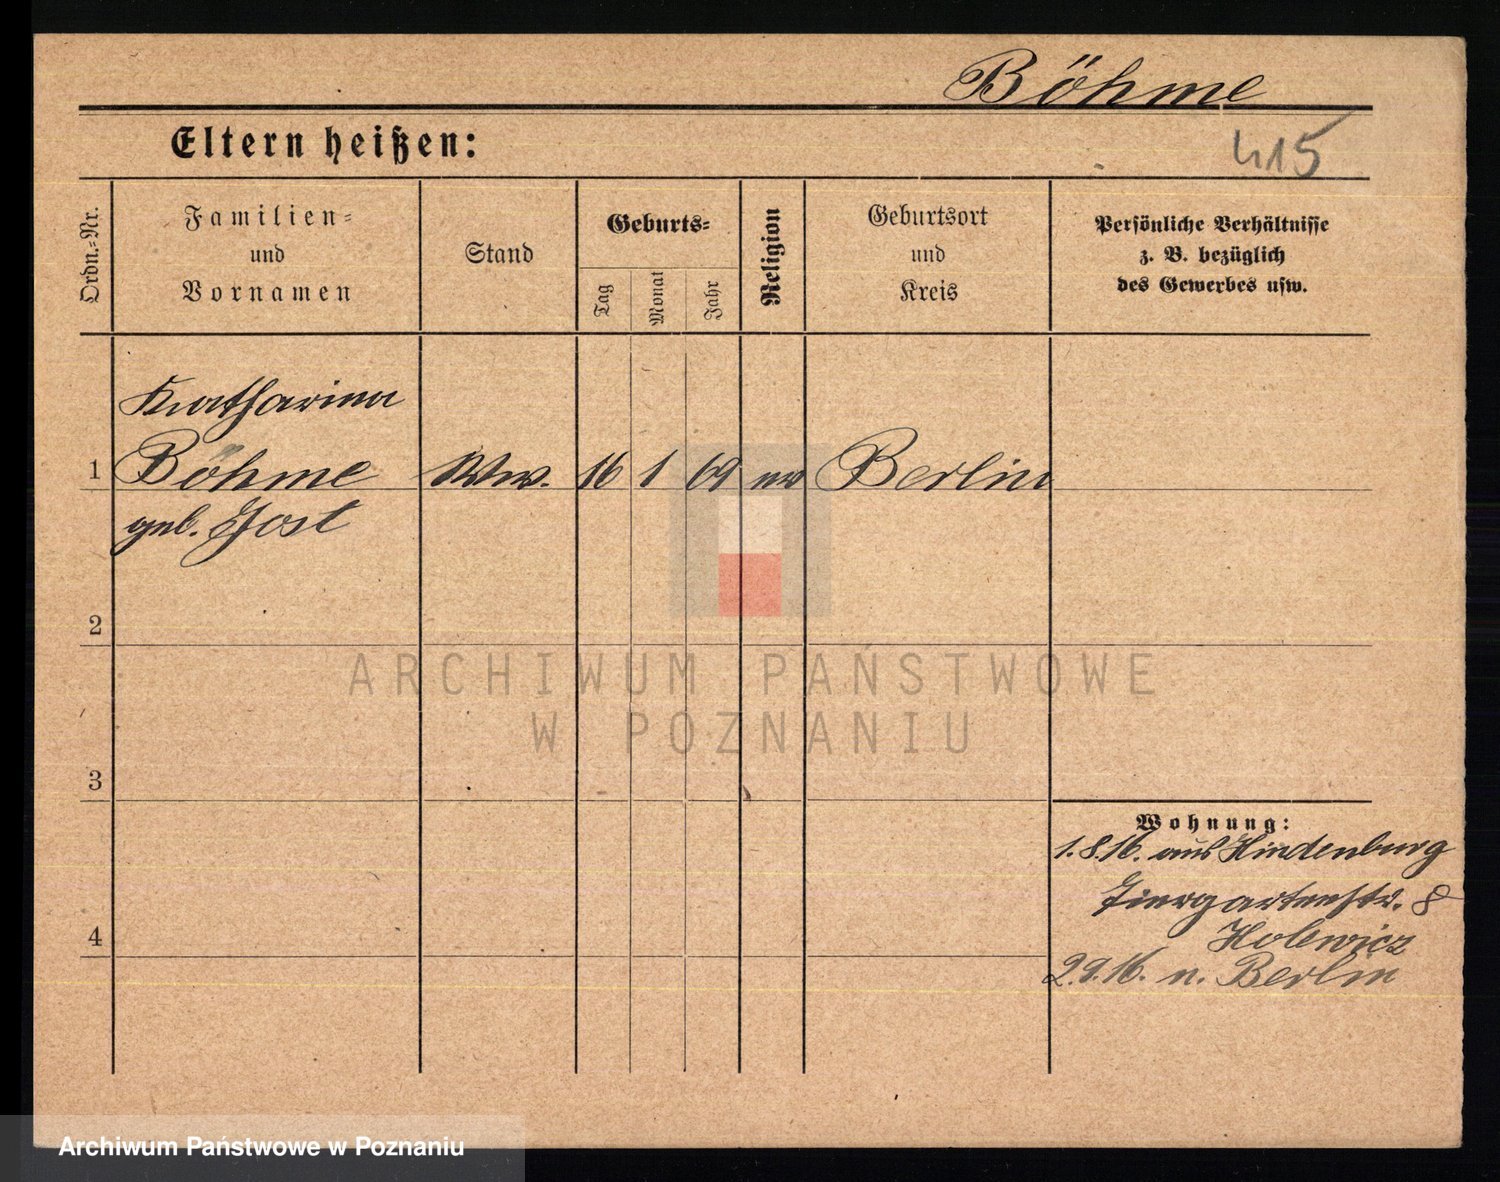 Böhme
Eltern heißen:
415
Ordn.-Nr.
Familien-
und
Vornamen
Stand
Geburts-
Tag
Monat
Jahr
Religion
Geburtsort
und
Kreis
Persönliche Verhältnisse
z. B. bezüglich
des Gewerbes usw.
Katharina
1 Böhme Ww. 16 1 69 ev Berlin
geb. Jost
2
ARCHIWUM PAŃSTWOWE
W POZNANIU
3
Wohnung:
1.8.16. aus Hindenburg
Tiergartenstr. 8
4
Holewicz
2.9.16. n. Berlin
Archiwum Państwowe w Poznaniu